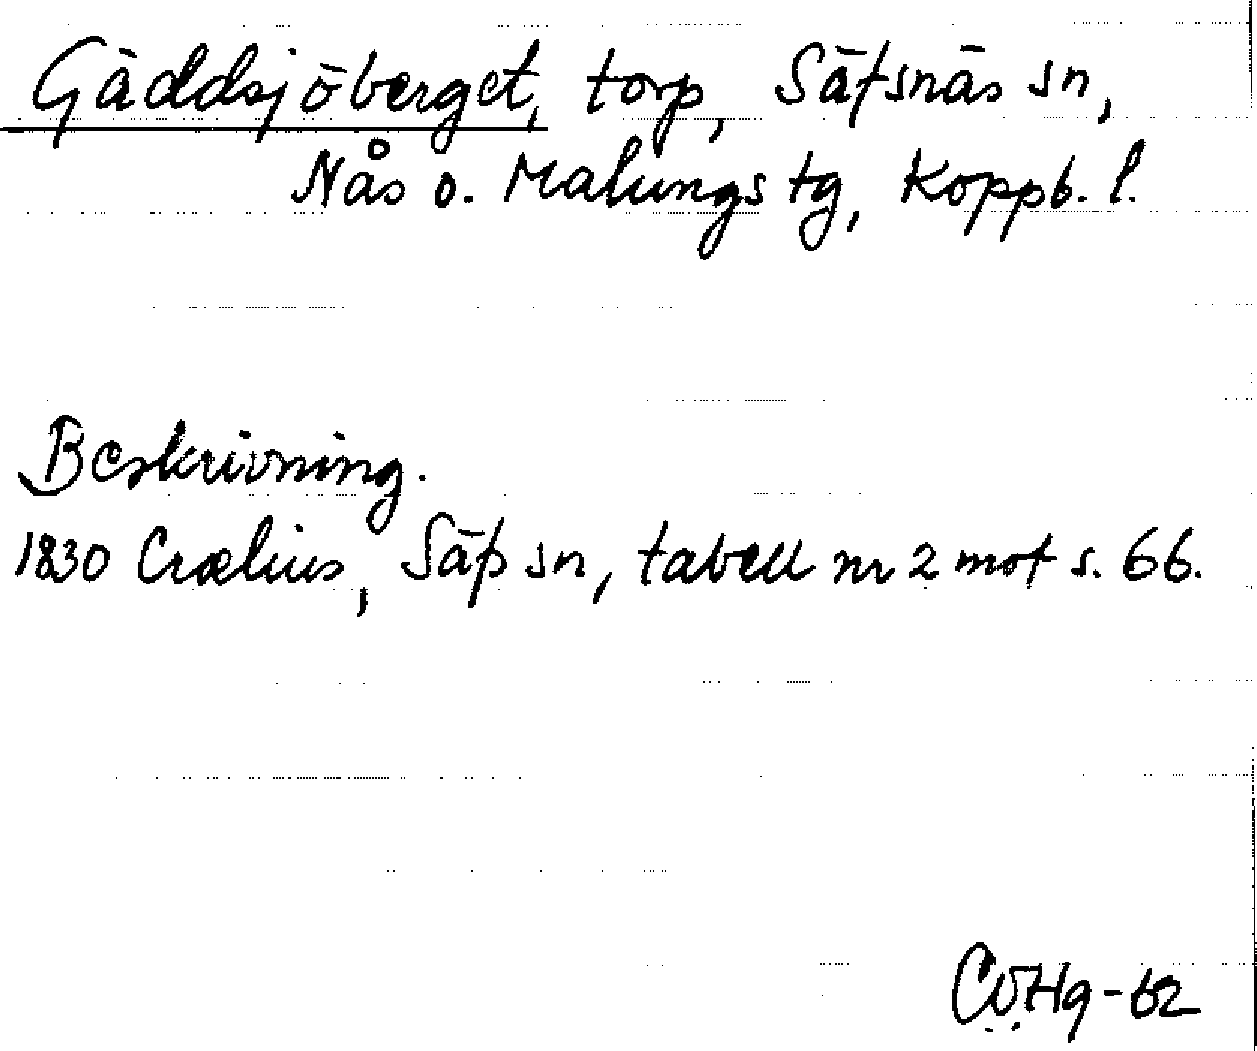 Gäddsjöberget, torp, Säfsnäs sn,
Nås o. Malungs tg, Koppb. l.
Beskrivning.
1830 Crælius, Säfs sn, tabell nr 2 mot s. 66.
CVHg-62